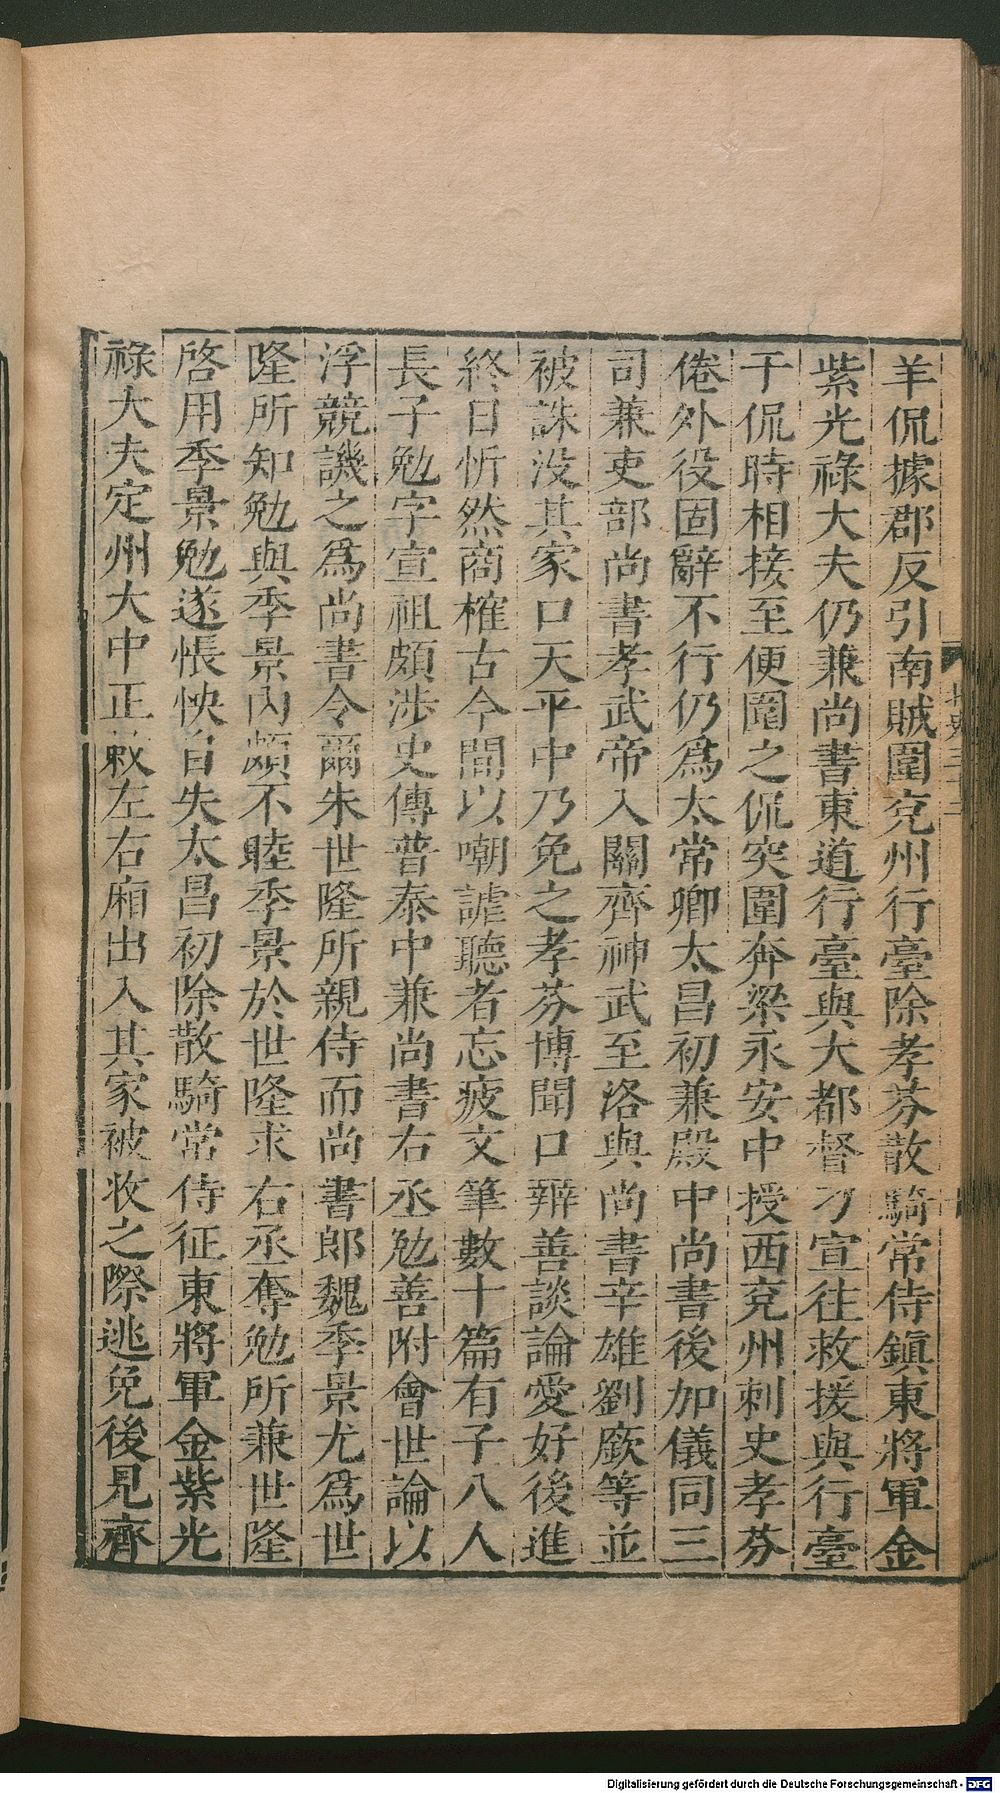 羊侃據郡反引南賊圍兗州行臺除孝芬散騎常侍鎮東將軍金
紫光祿大夫仍兼尚書東道行臺與大都督刁宣往救援與行臺
于侃時相接至便圍之侃突圍奔梁永安中授西兗州刺史孝芬
倦外役固辭不行仍爲太常卿太昌初兼殿中尚書後加儀同三
司兼吏部尚書孝武帝入關齊神武至洛與尚書辛雄劉廞等並
被誅没其家口天平中乃免之孝芬博聞口辯善談論愛好後進
終日忻然商榷古今間以嘲謔聽者忘疲文筆數十篇有子八人
長子勉字宣祖頗涉史傳普泰中兼尚書右丞勉善附會世論以
浮競譏之爲尚書令爾朱世隆所親侍而尚書郎魏季景尤爲世
隆所知勉與季景内頗不睦季景於世隆求右丞奪勉所兼世隆
啓用季景勉遂悵怏自失太昌初除散騎常侍征東將軍金紫光
祿大夫定州大中正敕左右廂出入其家被收之際逃免後見齊
Digitalisierung gefördert durch die Deutsche Forschungsgemeinschaft - DFG